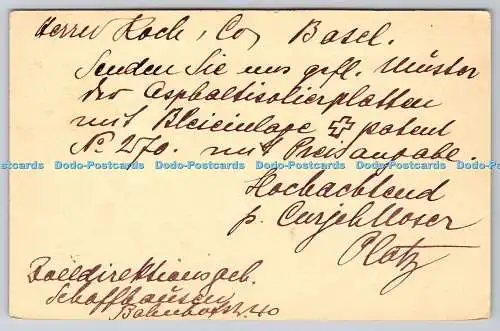 Herrn Koch, Co, Basel.
Senden Sie uns gefl. Muster
der Asphaltisolierplatten
mit Bleieinlage ✠ patent
Nº 2570. mit Preisangabe.
Hochachtend
p. Curjel & Moser
Platz
Zolldirektionsgeb.
Schaffhausen
Bahnhofstr. 40
Dodo-Postcards Dodo-Postcards Dodo-Postcards Dodo-Postcards